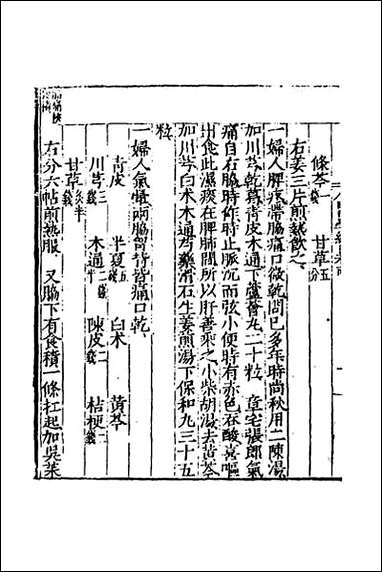 條芩一錢 甘草五分
右姜三片煎熱飲之
一婦人脾疼帶脇痛口微乾問已多年時尚秋用二陳湯
加川芎乾葛青皮木通下蘆薈丸二十粒 章宅張郎氣
痛自右脇時作時止脉沉而弦小便時有赤色吞酸喜嘔
出食此濕痰在脾肺間所以肝善乘之小柴胡湯去黃芩
加川芎白术木通芍藥滑石生姜煎湯下保和丸三十五
粒
一婦人氣暈兩脇胸背皆痛口乾
青皮 半夏 白术 黃芩
川芎 木通 陳皮 桔梗
甘草
右分六帖煎熱服 又脇下有食積一條杠起加吳茱